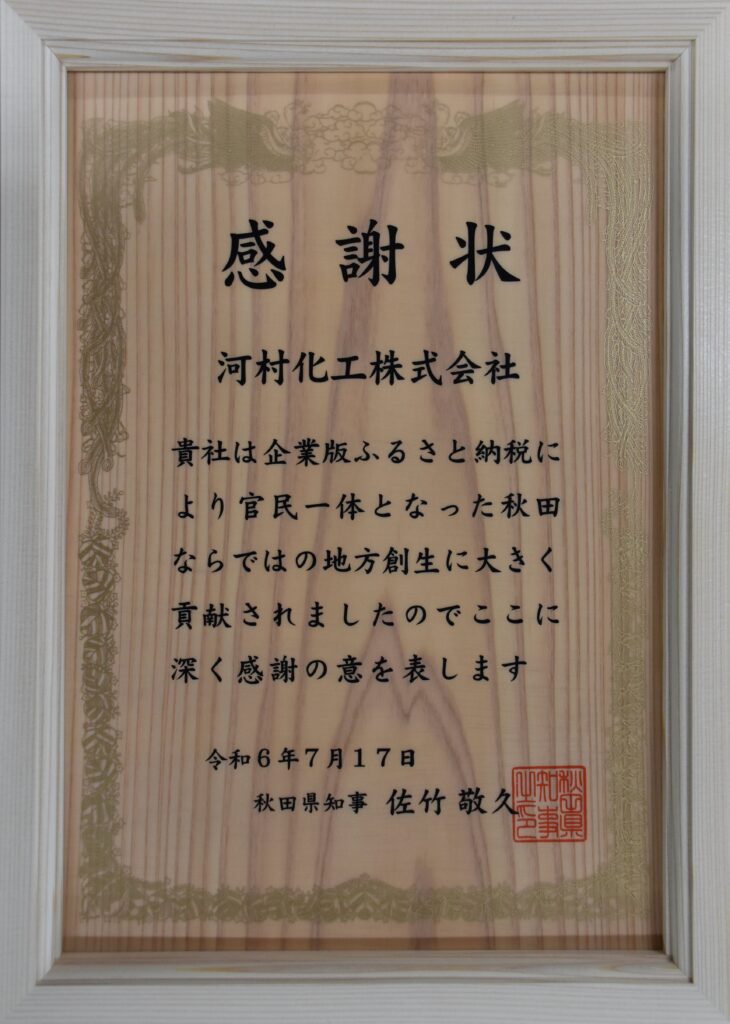 感謝状
河村化工株式会社
貴社は企業版ふるさと納税に
より官民一体となった秋田
ならではの地方創生に大きく
貢献されましたのでここに
深く感謝の意を表します
令和6年7月17日
秋田県知事 佐竹敬久
秋田県
知事
之印